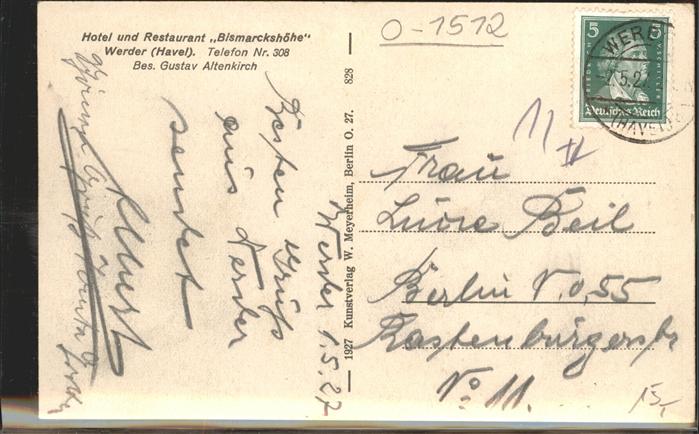 Hotel und Restaurant „Bismarckshöhe"
Werder (Havel). Telefon Nr. 308
Bes. Gustav Altenkirch
O-1512
5 5
Deutsches Reich
WERDER
(HAVEL)
828
1927 Kunstverlag W. Meyerheim, Berlin O. 27.
Werder 1.5.27
Besten Gruß
aus Werder
sendet
Albert
Frau
Luise Beil
Berlin N.O,55
Rastenburgerstr
No. 11.
15,-